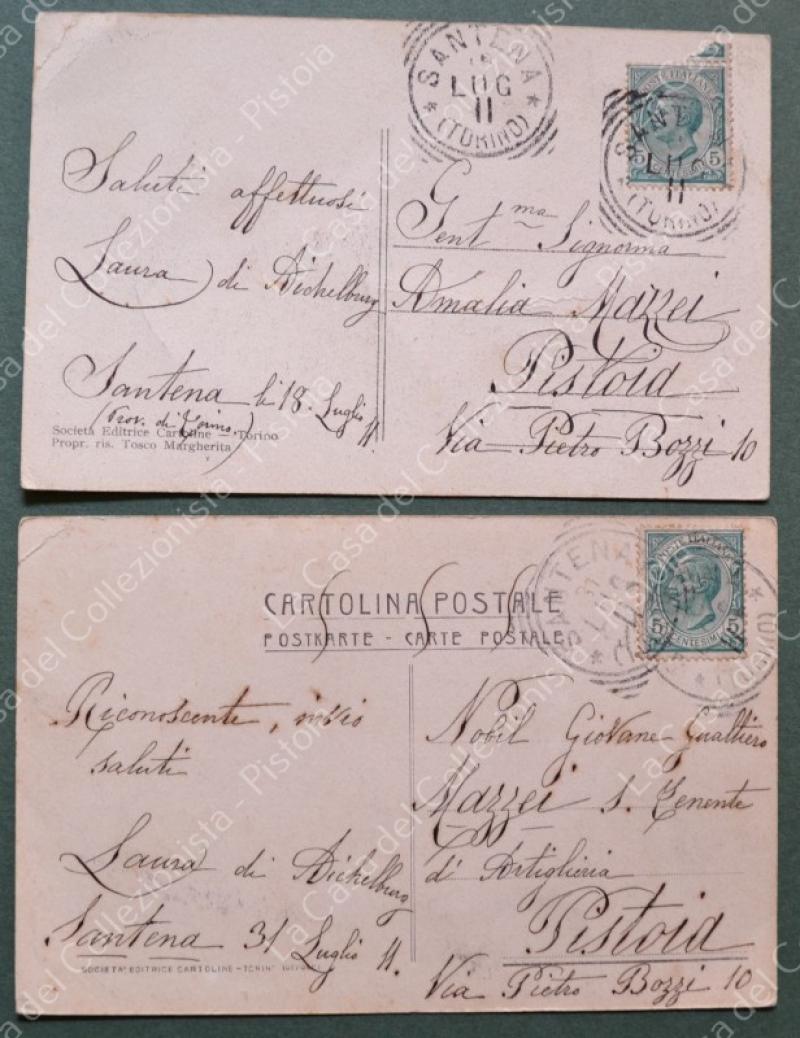 SANTENA
18
LUG
11
(TORINO)
SANT
LUG
11
(TORINO)
POSTE ITALIANE
5 5
Saluti affettuosi
Laura di Aichelburg
Santena li 18. Luglio 11.
(Prov. di Torino.)
Società Editrice Cartoline - Torino
Propr. ris. Tosco Margherita
Gent.ma Signorina
Amalia Mazzei
Pistoia
Via Pietro Bozzi 10
CARTOLINA POSTALE
POSTKARTE - CARTE POSTALE
SANTENA
LUG
POSTE ITALIANE
5 5
CENTESIMI
Riconoscente, invio
saluti
Laura di Aichelburg
Santena 31 Luglio 11.
SOCIETA' EDITRICE CARTOLINE - TORINO
Nobil Giovane Gualtiero
Mazzei S. Tenente
d' Artiglieria
Pistoia
Via Pietro Bozzi 10
La Casa del Collezionista - Pistoia